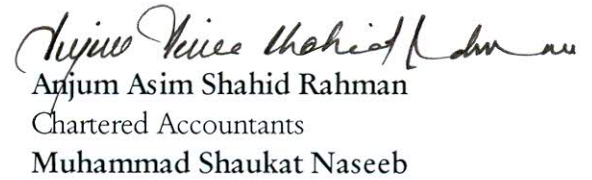 Anjum Asim Shahid Rahman
Anjum Asim Shahid Rahman
Chartered Accountants
Muhammad Shaukat Naseeb